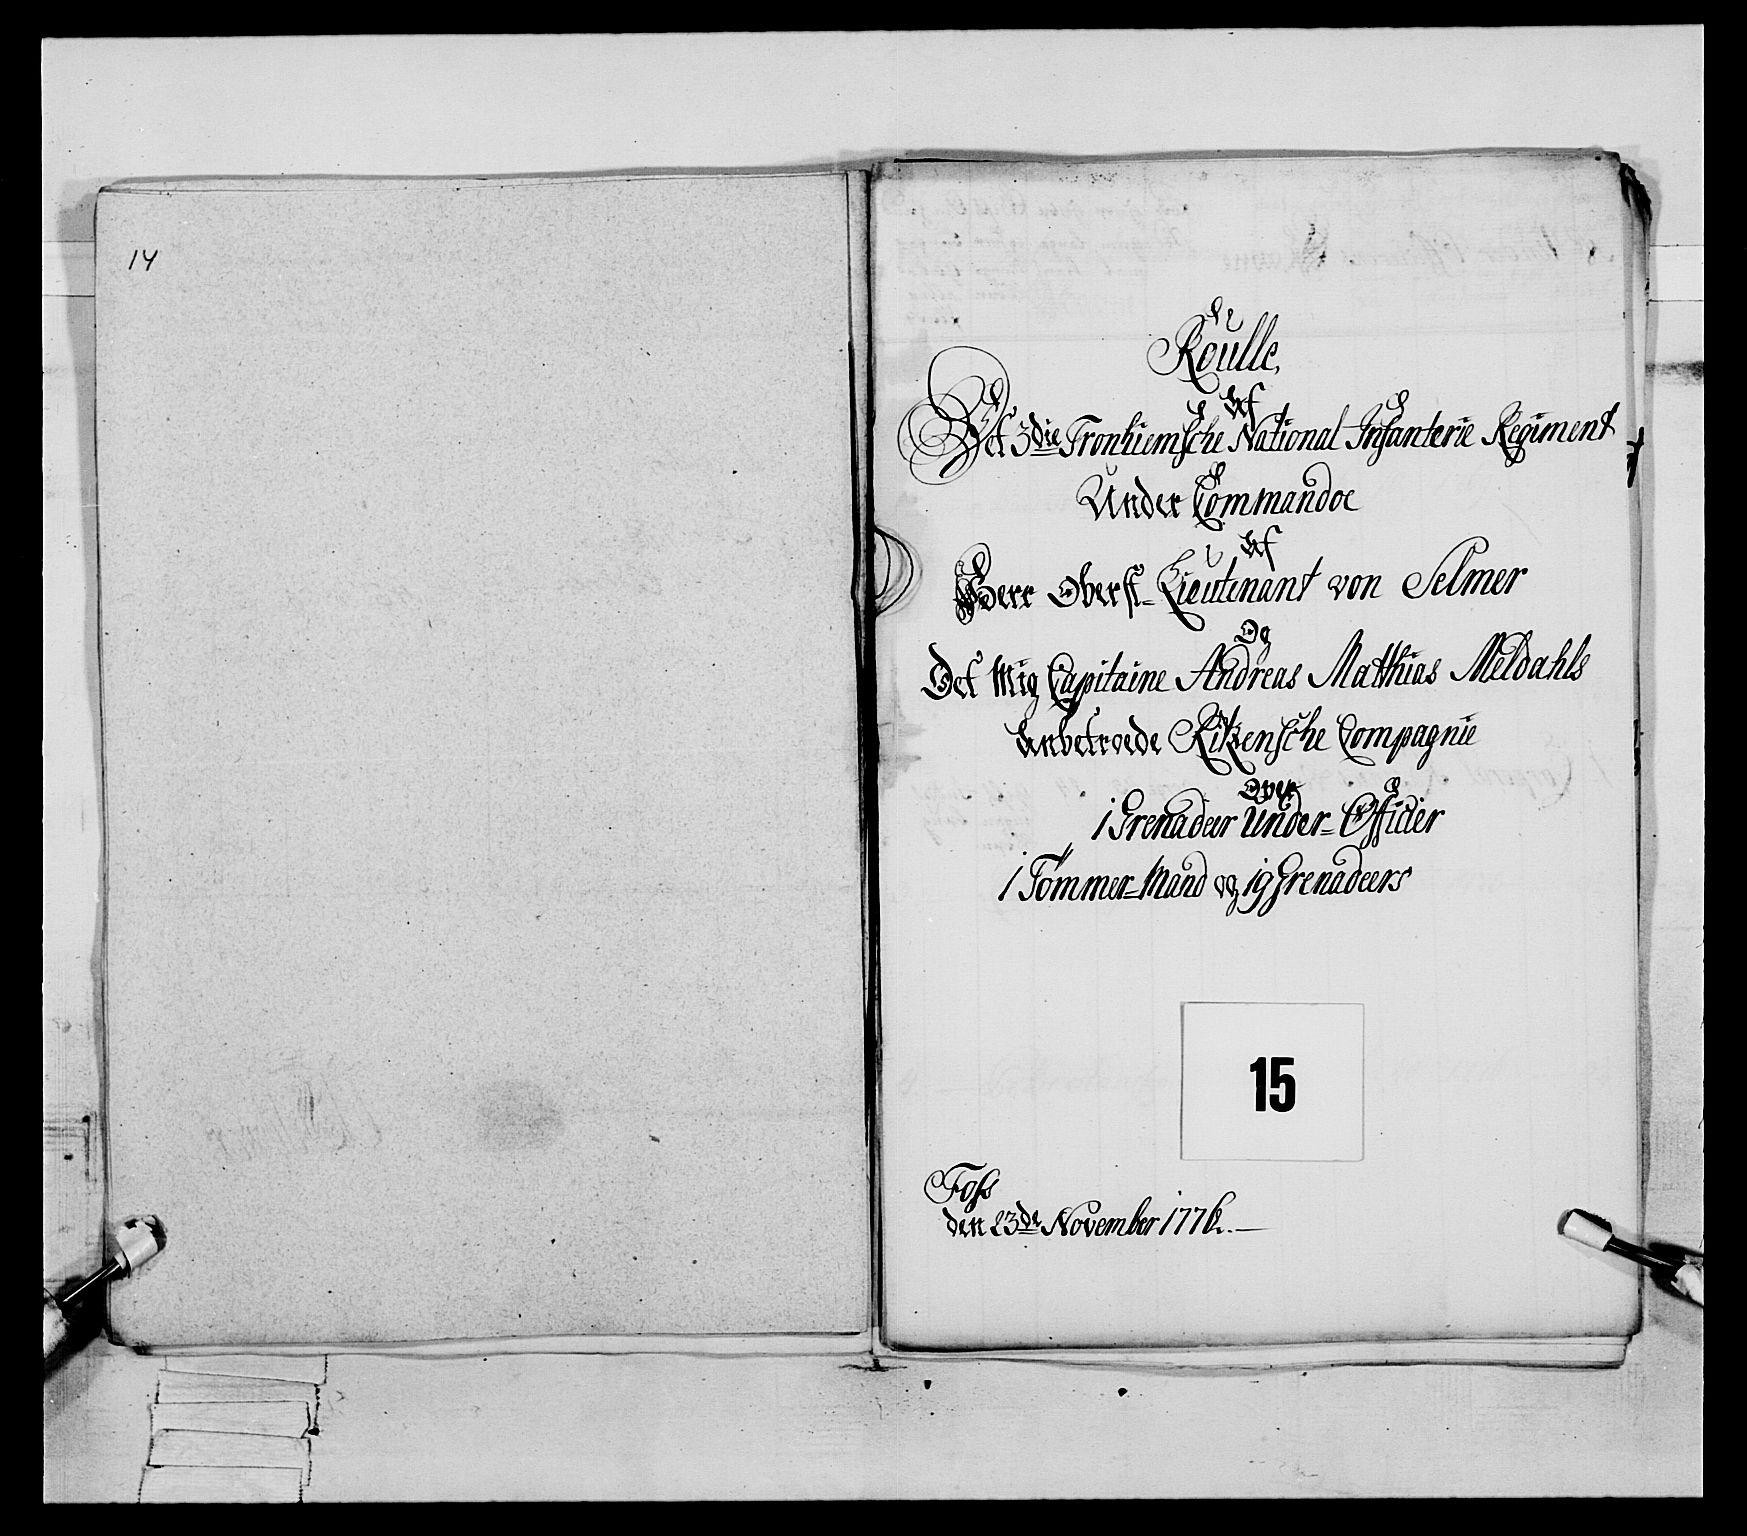 14
Roulle,
Af
Det 3die Tronhiemsche National Infanterie Regiment
Under Commandoe
Af
Herr Oberst-Lieutenant von Selmer
Og
Det Mig Capitaine Andreas Matthias Meldahls
Anbetroede Ritzensche Compagnie
Over
1 Grenadeer Under-Officier
1 Tömmer-Mand og 19 Grenadeers
15
Foss
den 23de November 1776.